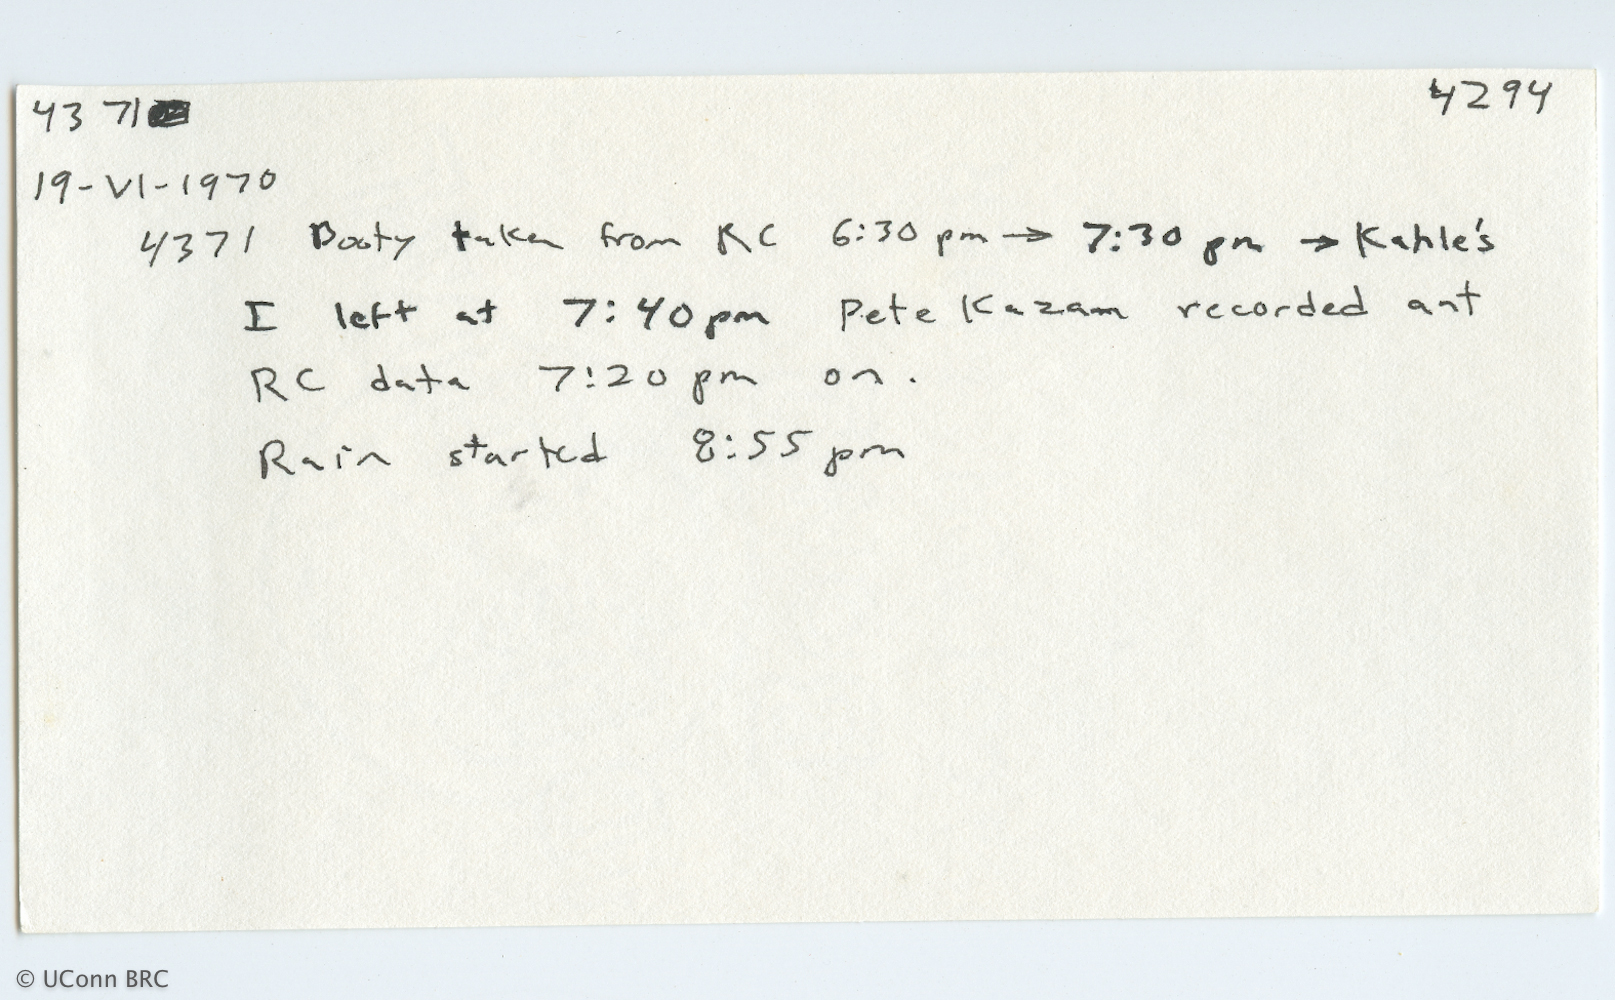 4371 4294
19-VI-1970
4371 Booty taken from RC 6:30 pm → 7:30 pm → Kahle's
I left at 7:40 pm Pete Kazam recorded ant
RC data 7:20 pm on.
Rain started 8:55 pm
© UConn BRC